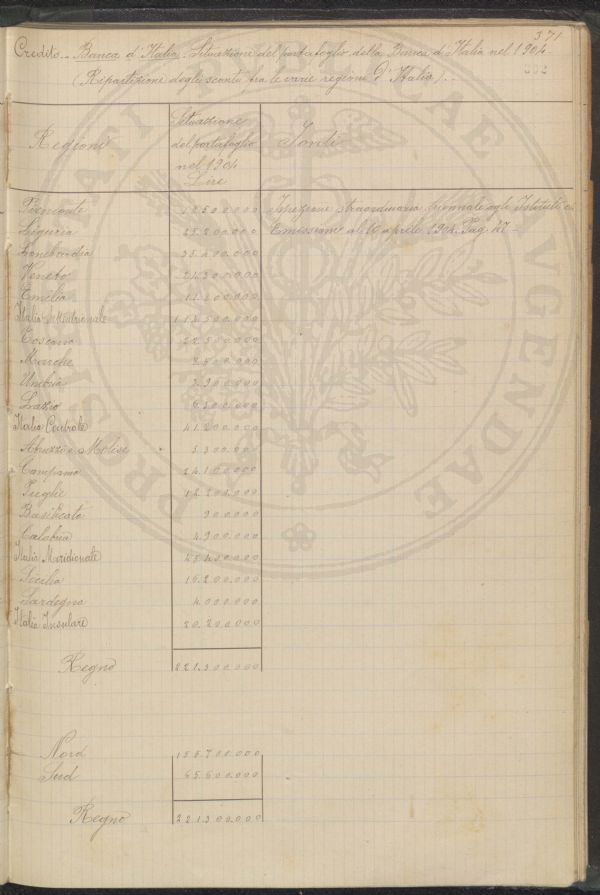 371
Credito - Banca d'Italia - Situazione del portafoglio della Banca d'Italia nel 1904
(Ripartizione degli sconti tra le varie regioni d'Italia). -
202
Regioni
Situazione
del portafoglio
nel 1904
Lire
Fonti
Piemonte 18.500.000 Ispezione straordinaria triennale agli Istituti di
Liguria 25.200.000 Emissione al 10 aprile 1904. Pag. 47 -
Lombardia 35.400.000
Veneto 24.300.000
Emilia 11.100.000
Italia Settentrionale 114.500.000
Toscana 22.500.000
Marche 8.500.000
Umbria 3.900.000
Lazio 6.300.000
Italia Centrale 41.200.000
Abruzzi e Molise 3.300.000
Campania 24.100.000
Puglie 12.200.000
Basilicata 900.000
Calabria 4.900.000
Italia Meridionale 45.400.000
Sicilia 16.200.000
Sardegna 4.000.000
Italia Insulare 20.200.000
Regno 221.300.000
Nord 155.700.000
Sud 65.600.000
Regno 221.300.000
PROSPERITATI PUBLICAE AVGENDAE